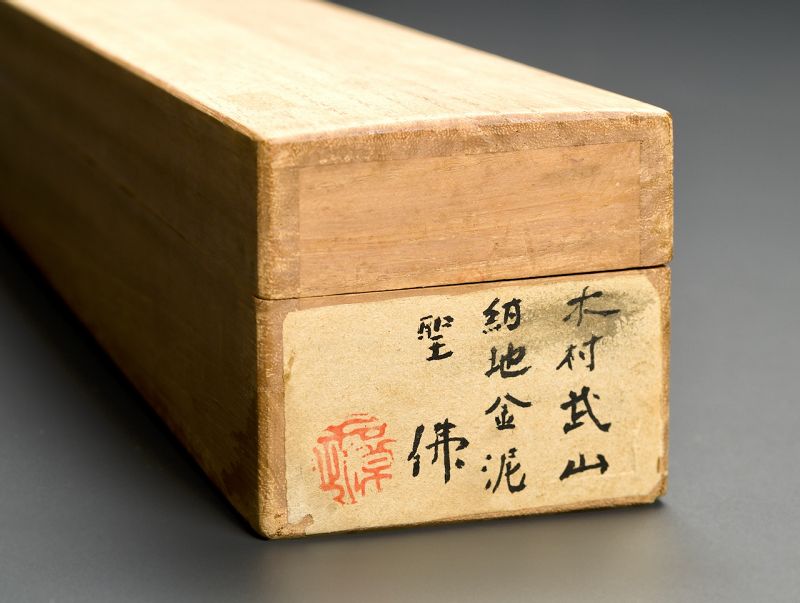 木村武山
紺地金泥
聖佛